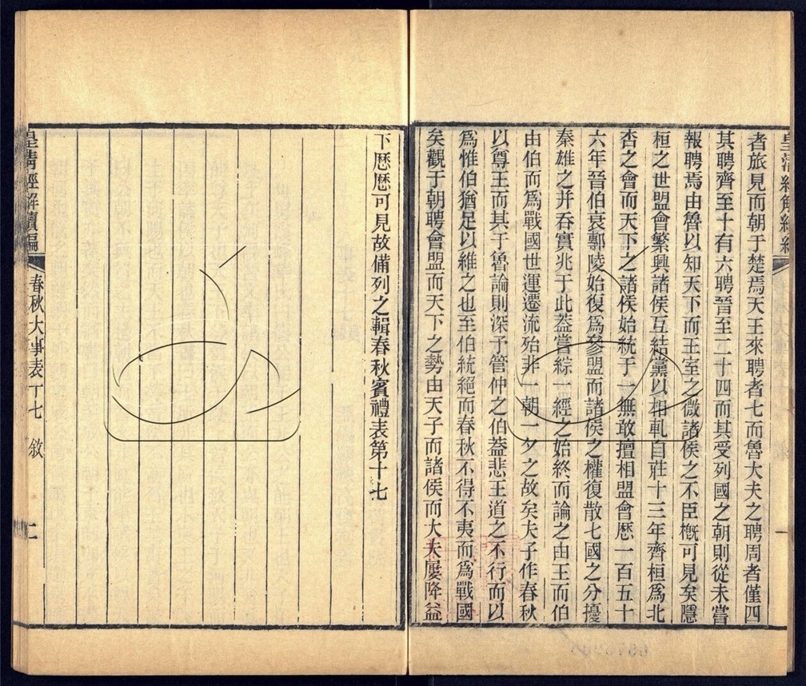 皇清經解續編
者旅見而朝于楚焉天王來聘者七而魯大夫之聘周者僅四
其聘齊至十有六聘晉至二十四而其受列國之朝則從未嘗
報聘焉由魯以知天下而王室之微諸侯之不臣槪可見矣隱
桓之世盟會繁興諸侯互結黨以相軋自莊十三年齊桓爲北
杏之會而天下之諸侯始統于一無敢擅相盟會歷一百五十
六年晉伯衰鄟陵始復爲參盟而諸侯之權復散七國之分擾
秦雄之并吞實兆于此蓋嘗綜一經之始終而論之由王而伯
由伯而爲戰國世運遷流殆非一朝一夕之故矣夫子作春秋
以尊王而其于魯論則深予管仲之伯蓋悲王道之不行而以
爲惟伯猶足以維之也至伯統絕而春秋不得不夷而爲戰國
矣觀于朝聘會盟而天下之勢由天子而諸侯而大夫屢降益
下歷歷可見故備列之輯春秋賓禮表第十七
皇清經解續編
春秋大事表十七 敘
二